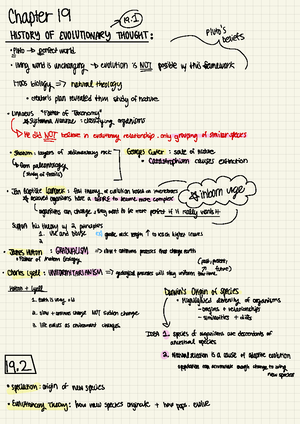 Chapter 19
19.1
HISTORY OF EVOLUTIONARY THOUGHT:
Pluto's beliefs
• Pluto → perfect world
• living world is unchanging → evolution is NOT possible w/ this framework
1700s biology => natural theology
• creator's plan revealed thru study of nature
• Linnaeus "Father of Taxonomy"
↳ systematic manner: classifying organisms
→ He did NOT believe in evolutionary relationship. only grouping of similar species
• : layers of sedimentary rock
↳ from paleontology
(study of fossils)
Georges Cuvier: scale of nature
• Catastrophism causes extinction
• Jen Baptiste Lamarck: first theory of evolution based on
* inborn urge
* organisms have a desire to become more complex
organisms can change, they want to be more perfect if it really wants it
Support his theory w/ 2 principles
1. Use and disuse giraffe neck length ↑ to reach higher leaves
2.
• James Hutton: GRADUALISM => slow + continuous processes that change earth
* Father of Modern Geology
(past, present, + future)
• Charles Lyell: UNIFORMITARIANISM => geological processes will stay uniform
Hutton + Lyell
1. Earth is very old
2. slow + continuous change NOT sudden change
3. life evolves as environment changes
Darwin's Origin of species
• Highlighted diversity of organisms
- origins + relationships
- similarities + diffs
IDEA 1. species of organisms are descendents of
ancestral species
2. Natural selection is a cause of adaptive evolution
adaptations can accumulate enough change to bring
new species
19.2
• speciation: origin of new species
• Evolutionary Theory: how new species originate + how pops. evolve